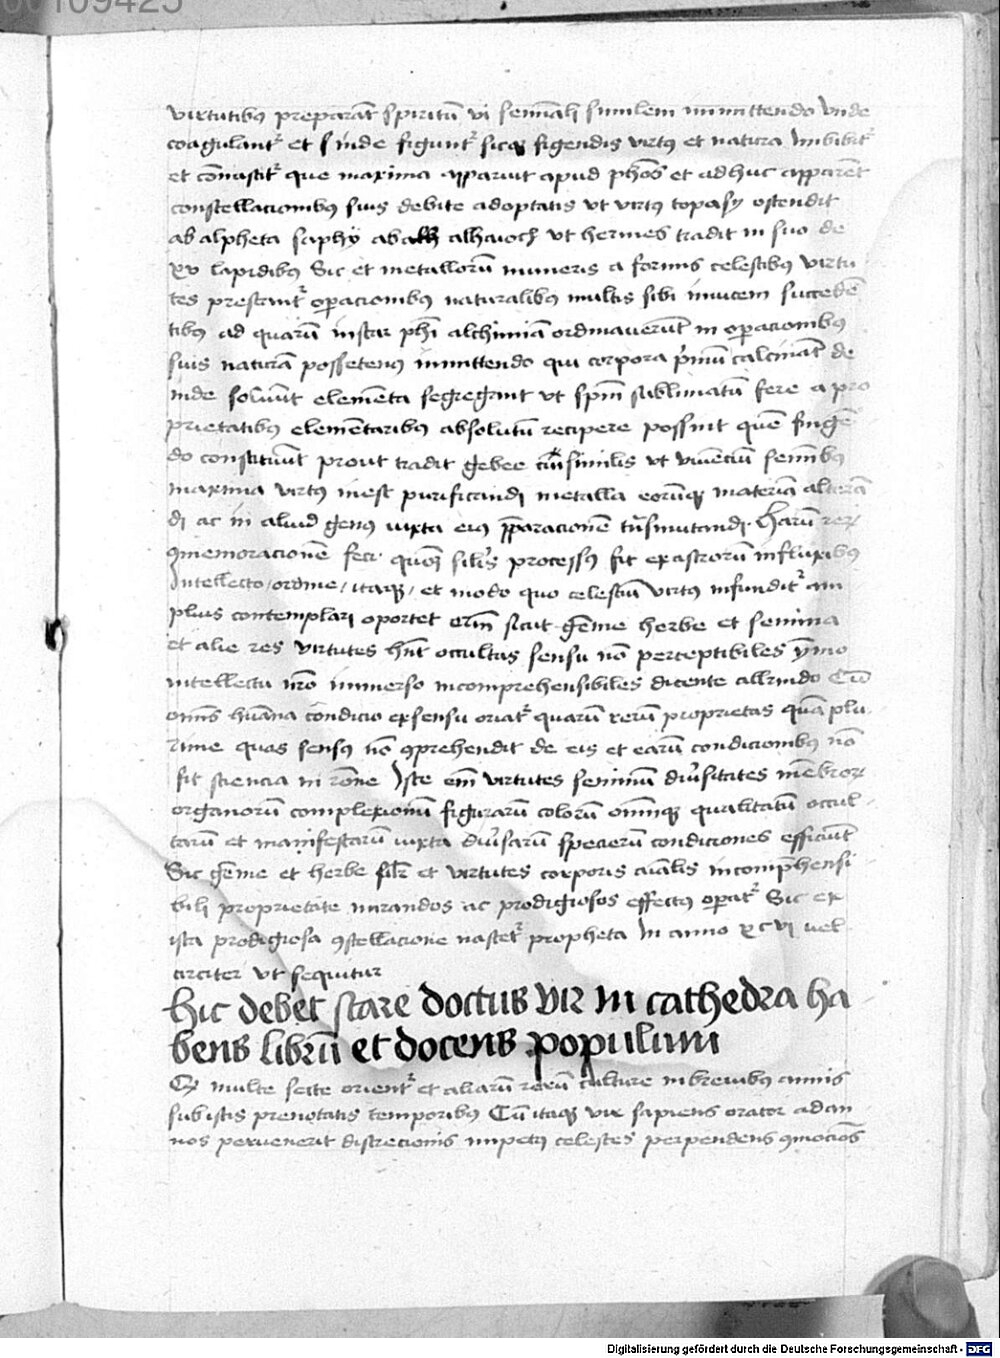 00109425
virtutibꝰ preparat̄ spiritū vi semīali similem inmittendo vnde
coagulant᷑ et sinde figunt᷑ sicqꝫ figendis virtꝰ et natura imbibit᷑
et cōnastit᷑ que maxima apparuit apud ph̄os et adhuc apparēt
constellacionibꝰ suis debite adoptatis vt virtꝰ topasy ostendit
ab alpheta saphÿ ab vt hermes tradit in suo de
xv lapidibꝰ Sic et metallorū muneris a formis celestibꝰ virtu
tes prestant᷑ oꝑacionibꝰ naturalibꝰ multis sibi inuicem succedē
tibꝰ ad quarū instar ph̄i alchimiā ordinauerūt in oꝑacionibꝰ
suis naturā possetenꝰ inmittendo qui corpora p̄mū calcināt de
inde soluūt elemēta segregant vt sp̄m sublimatū fere a pro
prietatibꝰ elemētaribꝰ absolutū recipere possint quē fingē
do constituūt prout tradit geber similis vt viuenciū semībꝰ
maxima virtꝰ inest purificandi metalla eorūqꝫ materiā alterā
di ac in aliud genꝰ iuxta eiꝰ p̄paracionē trāsmutandi. Harū reꝝ
ꝯmemoracionē feci quoniā sil̄is processꝰ fit ex astrorū influxibꝰ
Intellecto / ordine / itaqꝫ / et modo quo celestiū virtꝰ infundit᷑ am
plius contemplari oportet em̄ sicut gēme herbe et semina
et alie res virtutes hn̄t occultas sensu nō perceptibiles ymo
intellectu nr̄o inmerso incomprehensibiles dicente alkindo Cū
om̄is hūana condicio ex sensu oriat᷑ quarū rerū proprietas quā plu
rime quas sensꝰ nō ꝯprehendit de eis et earū condicionibꝰ nō
fit sciencia in rōne Iste em̄ virtutes seminū diu̓sitates mēbroꝝ
organorū complexionū figurarū colorū om̄iūqꝫ qualitatū occul
tarū et manifestarū iuxta diu̓sarū specierū condiciones efficiūt
Sic gēme et herbe sil̄r et virtutes corporis aīalis incomp̄hensi
bili proprietate mirandos ac prodigiosos effectꝰ oꝑat᷑ Sic ex
ista prodigiosa ꝯstellacione nascet᷑ propheta In anno xcvi vel
circiter vt sequitur
hic debet stare doctus vir in cathedra ha
bens librū et docens populum
Ex multe secte orient᷑ et aliarū rerū culture in breuibꝰ annis
sub istis prenotatis temporibꝰ Cū itaqꝫ vir sapiens orator ad an
nos peruenerit discrecionis impetꝰ celestes perpendens ꝯmocōs
Digitalisierung gefördert durch die Deutsche Forschungsgemeinschaft - DFG